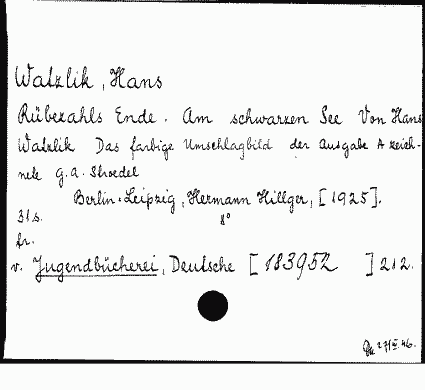 Watzlik, Hans
Rübezahls Ende. Am schwarzen See Von Hans
Watzlik Das farbige Umschlagbild der Ausgabe A zeich-
nete G. A. Stroedel
Berlin-Leipzig, Hermann Hillger, [1925].
31 s. 8°
fr.
v. Jugendbücherei, Deutsche [183952 ] 212.